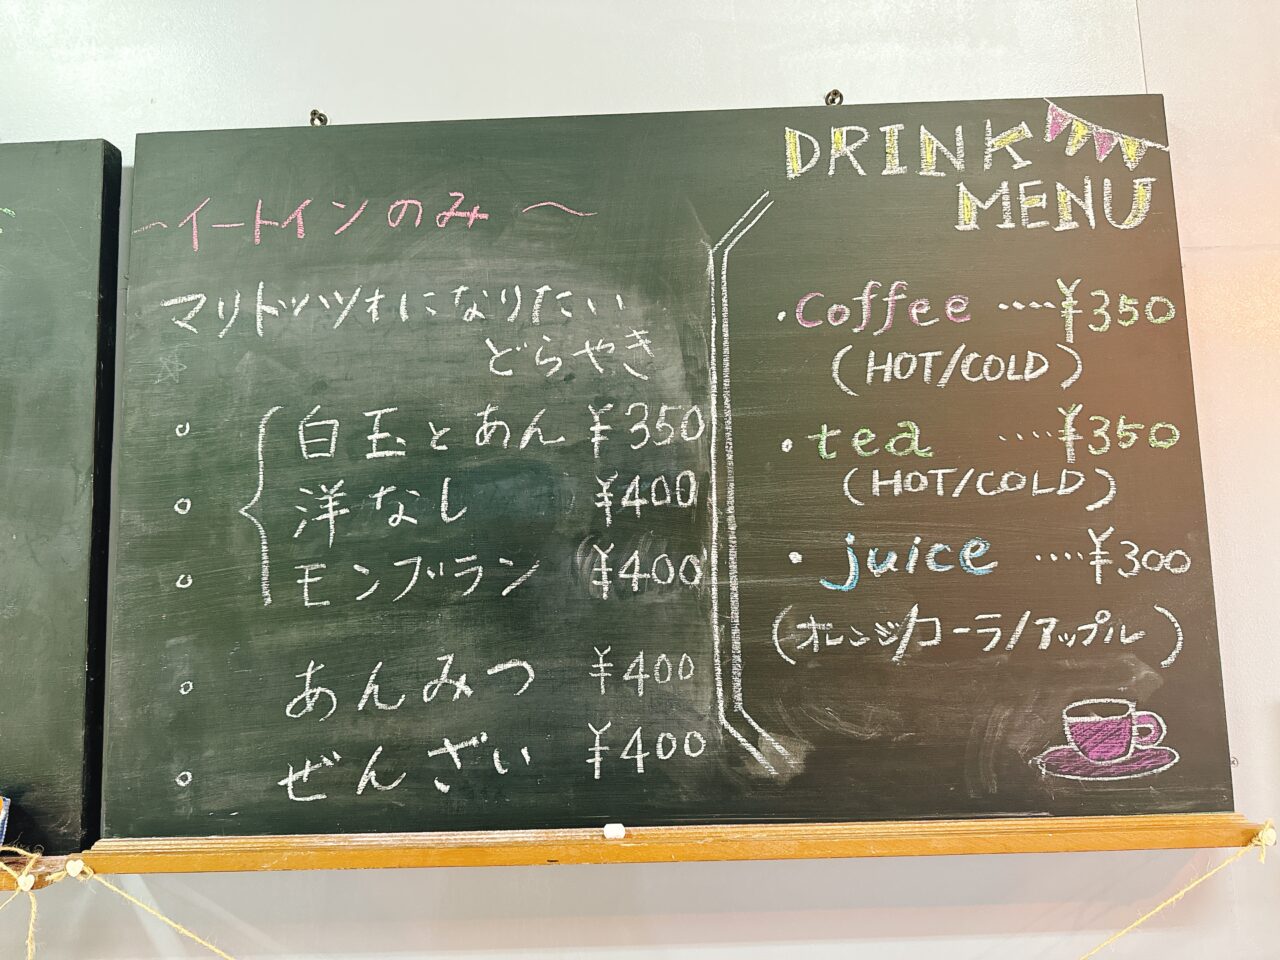 ~イートインのみ~
マリトッツォになりたい
どらやき
白玉とあん ¥350
洋なし ¥400
モンブラン ¥400
あんみつ ¥400
ぜんざい ¥400
DRINK
MENU
・Coffee ....¥350
(HOT/COLD)
・tea ....¥350
(HOT/COLD)
・juice ....¥300
(オレンジ/コーラ/アップル)